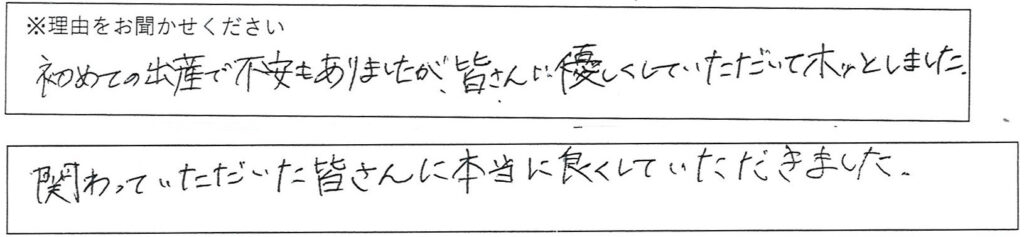 ※理由をお聞かせください
初めての出産で不安もありましたが、皆さんに優しくしていただいてホッとしました。
関わっていただいた皆さんに本当に良くしていただきました。